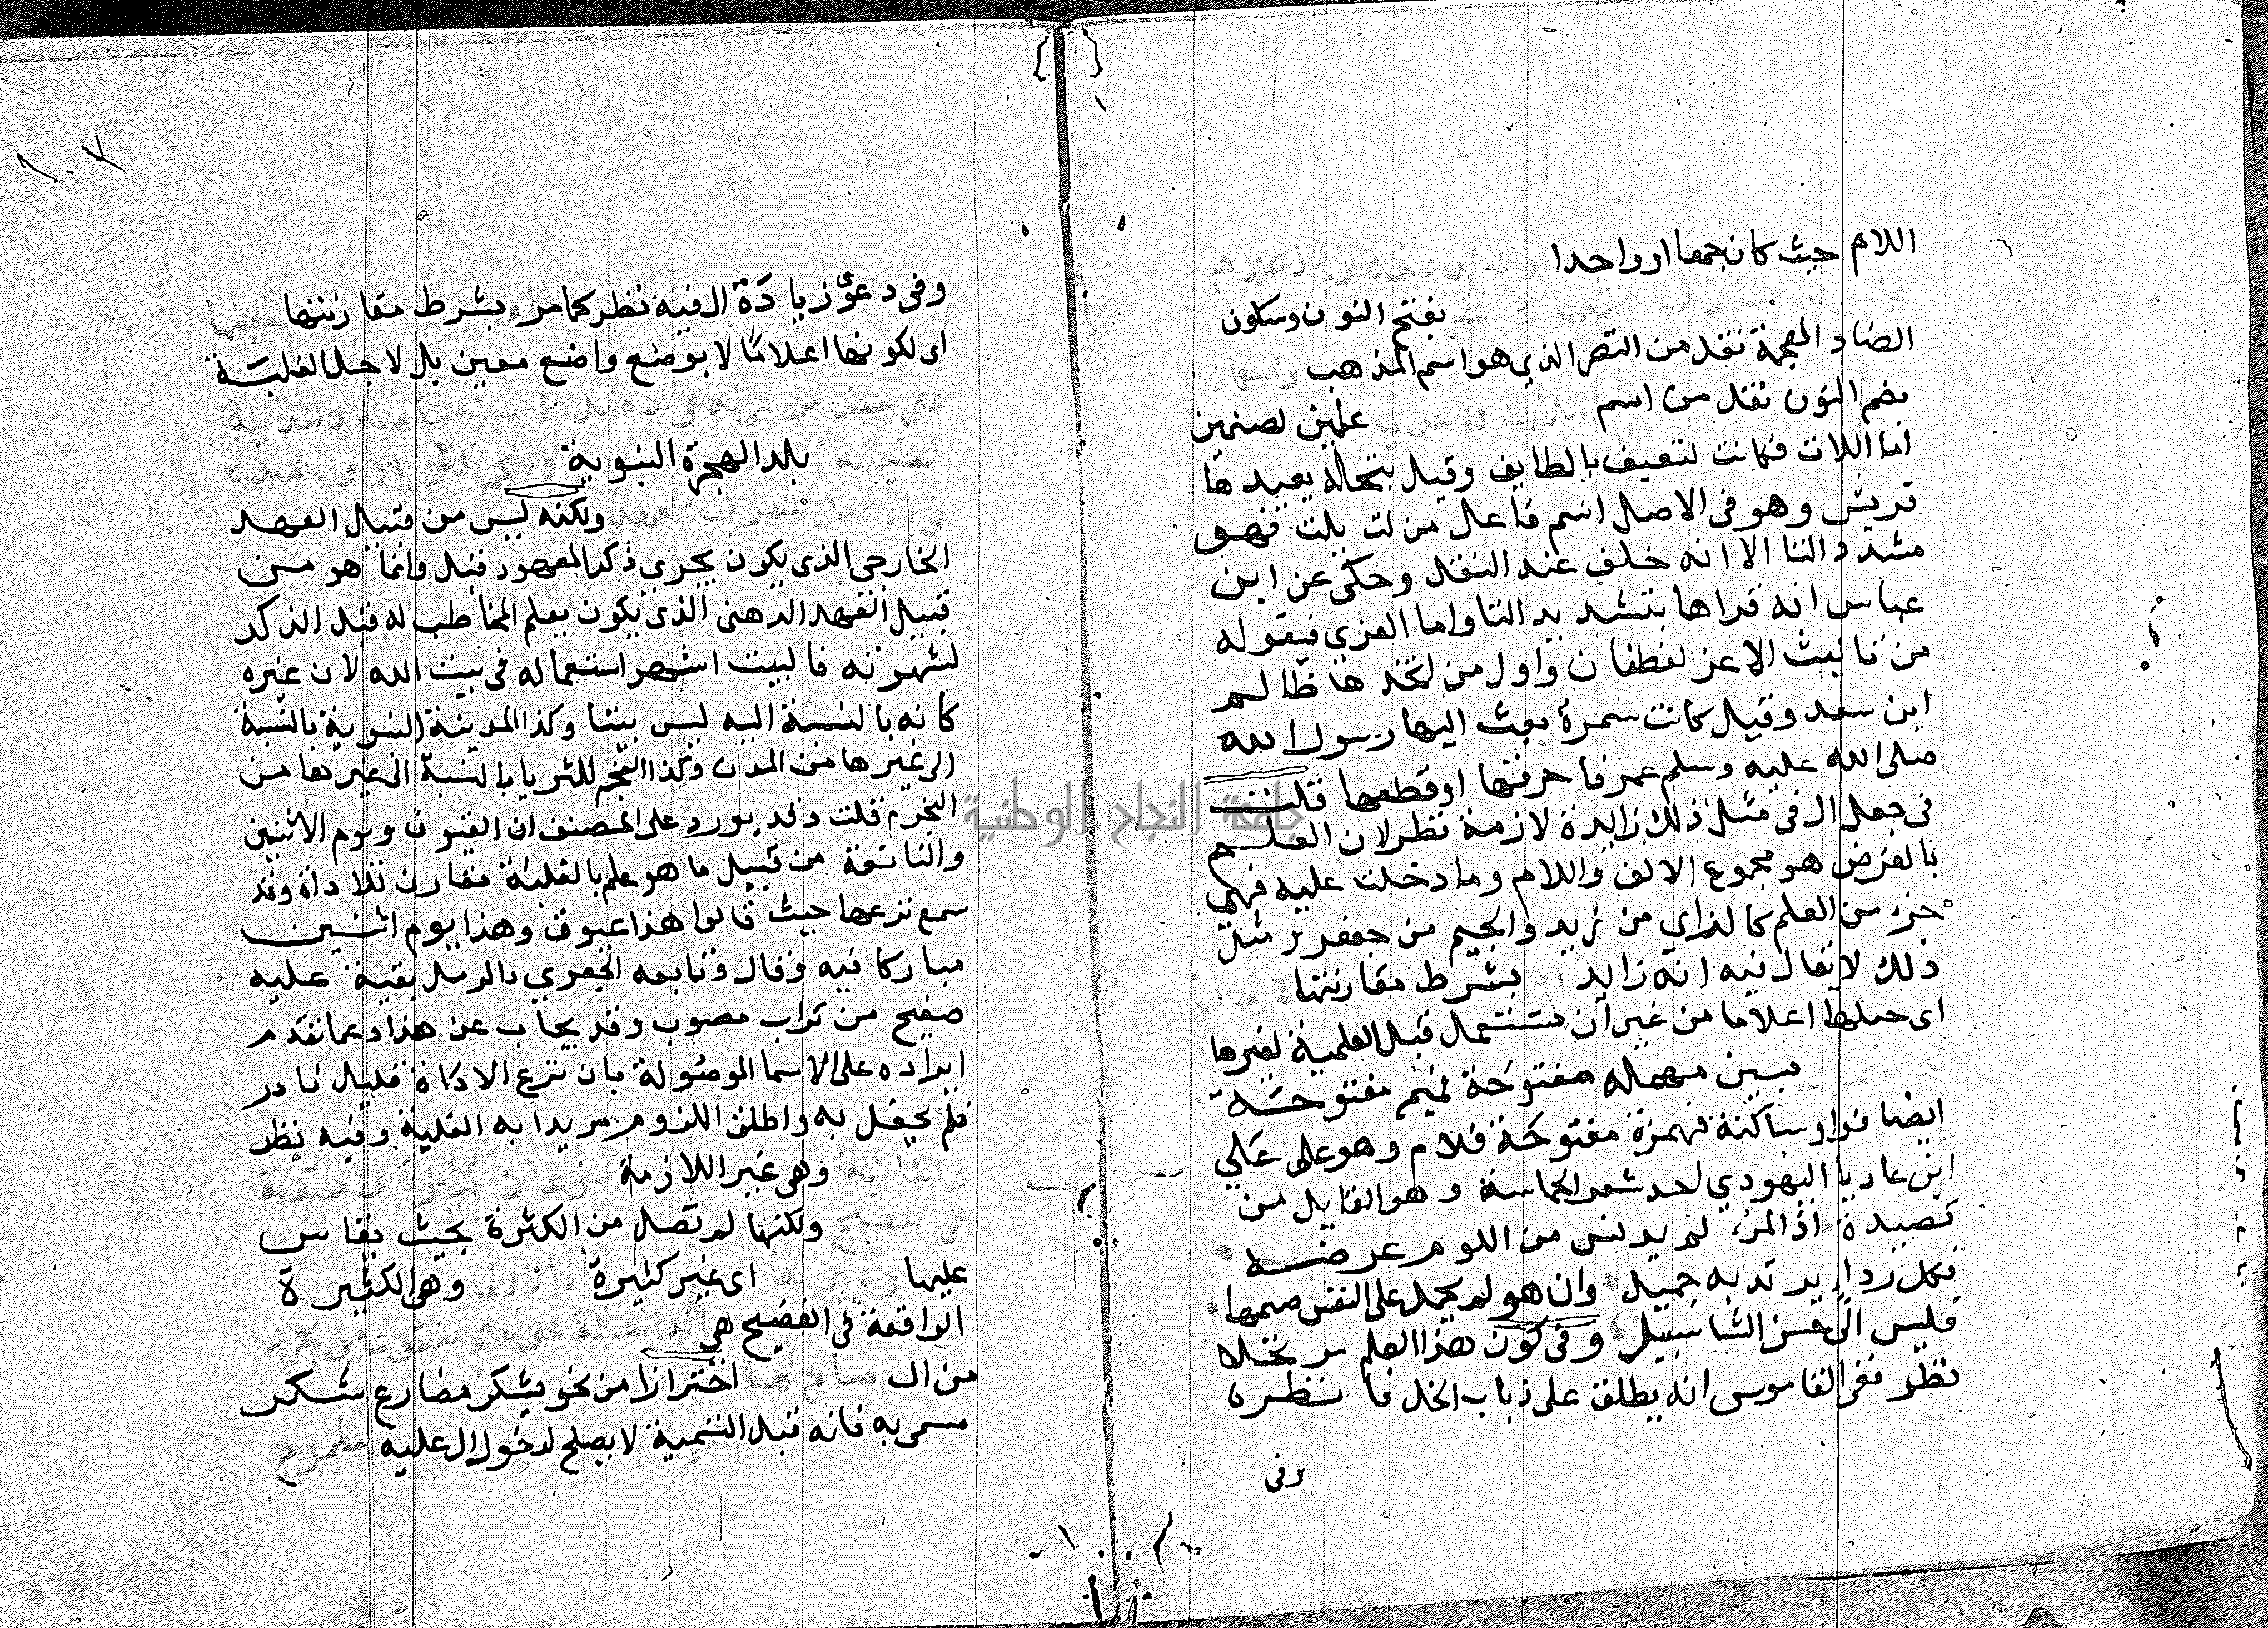 اللام حيث كان جمعا او واحدا
بفتح النون وسكون
الضاد المعجمة نقد من النضر الذي هو اسم المذهب
بضم النون نقل من اسم علمين لصنمين
اما اللات فكانت لثقيف بالطايف وقيل بنخلة يعبدها
قريش وهو في الاصل اسم فاعل من لت يلت فهو
مشدد التا الا انه خفف عند النقل وحكى عن ابن
عباس انه قراها بتشديد التا واما العزي فيقوله
من تانيث الاعز لغطفان واول من اتخذها ظالم
ابن سعد وقيل كانت سمرة بعث اليها رسول الله
صلى الله عليه وسلم عمر فاحرقها او قطعها قلت
في جعل ال في مثل ذلك زايدة لازمة نظر لان العلم
بالغرض هو مجموع الالف واللام وما دخلت عليه فهي
جزء من العلم كالزاي من زيد والجيم من جعفر ومثل
ذلك لا يقال فيه انه زايد بشرط مقارنتها
اي جعلها اعلاما من غير ان تستعمل قبل العلمية لغيرها
بسين مهملة مفتوحة فميم مفتوحة
ايضا فواو ساكنة فهمزة مفتوحة فلام وهو على علي
ابن عاديا اليهودي احد شعرا الحماسة وهو القايل من
قصيدة اذا المرء لم يدنس من اللوم عرضه
فكل رداء يرتديه جميل وان هو لم يحمل على النفس ضيمها
فليس الى حسن الثنا سبيل وفي كون هذا العلم مرتجلا
نظر ففي القاموس انه يطلق على ذباب الخل فانظره
وفي
١٠٧
وفي دعوى زيادة ال فيه نظر كما مر بشرط مقارنتها
اي لكونها اعلاما لا بوضع واضع معين بل لاجل الغلبة
على بعض من هي له في الاصل كالبيت للكعبة والمدينة
لطيبة بلد الهجرة النبوية والنجم للثريا وهذه
في الاصل لتعريف العهد ولكنه ليس من قبيل العهد
الخارجي الذي يكون بجري ذكر المعهود قبل وانما هو من
قبيل العهد الذهني الذي يكون بعلم المخاطب له قبل الذكر
لشهرته فالبيت اشتهر استعماله في بيت الله لان غيره
كانه بالنسبة اليه ليس بيتا وكذا المدينة النبوية بالنسبة
الى غيرها من المدن وكذا النجم للثريا بالنسبة الى غيرها من
النجوم قلت وقد يورد على المصنف ان العيوق ويوم الاثنين
والنابغة من قبيل ما هو علم بالغلبة مقارن للاداة وقد
سمع نزعها حيث قالوا هذا عيوق وهذا يوم اثنين
مباركا فيه وقال ونابغة الجعدي بالرمل بقية عليه
صفيح من تراب مصوب وقد يجاب عن هذا وعما تقدم
ايراده على الاسما الموصولة بان نزع الاداة قليل نادر
فلم يحفل به واطلق اللزوم مريدا به الغلبة وفيه نظر
والثانية وهي غير اللازمة نوعان كثيرة واقعة
في فصيح ولكنها لم تصل من الكثرة بحيث يقاس
عليها وغيرها اي غير كثيرة فالاولى وهي الكثيرة
الواقعة في الفصيح هي الداخلة على علم منقول من مجرد
من ال صالح لها احترازا من نحو يشكر مضارع شكر
مسمى به فانه قبل التسمية لا يصلح لدخول ال عليه ملموح
جامعة النجاح الوطنية